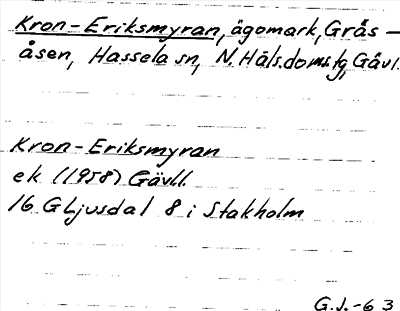 Kron-Eriksmyran, ägomark, Grås-
åsen, Hassela sn, N. Häls. doms.fg, Gävl.
Kron-Eriksmyran
ek (1958) Gävll.
16 G Ljusdal 8 i Stakholm
G.J.-63